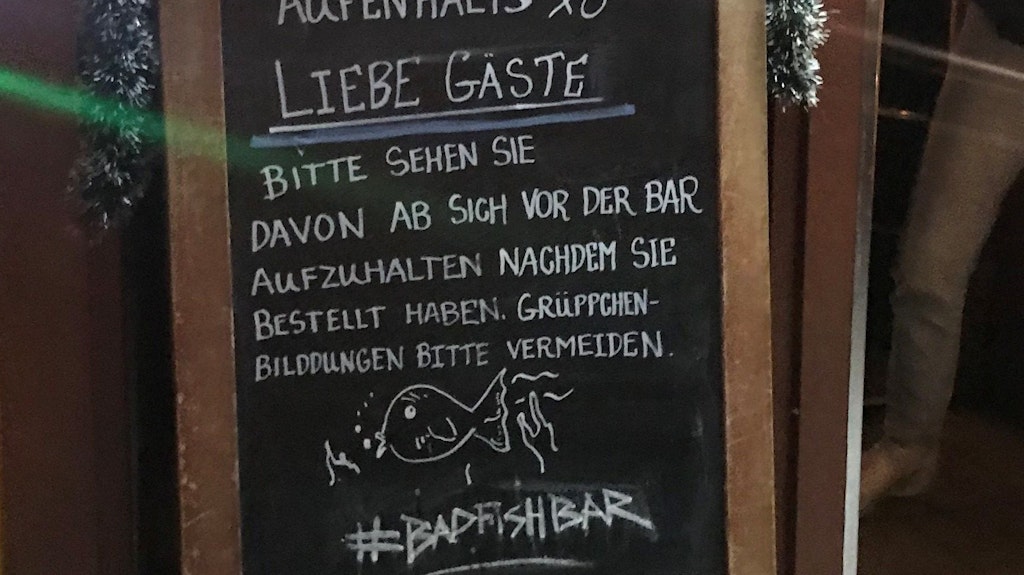 AUFENHALTS XO
LIEBE GÄSTE
BITTE SEHEN SIE
DAVON AB SICH VOR DER BAR
AUFZUHALTEN NACHDEM SIE
BESTELLT HABEN. GRÜPPCHEN-
BILDDUNGEN BITTE VERMEIDEN.
#BADFISHBAR